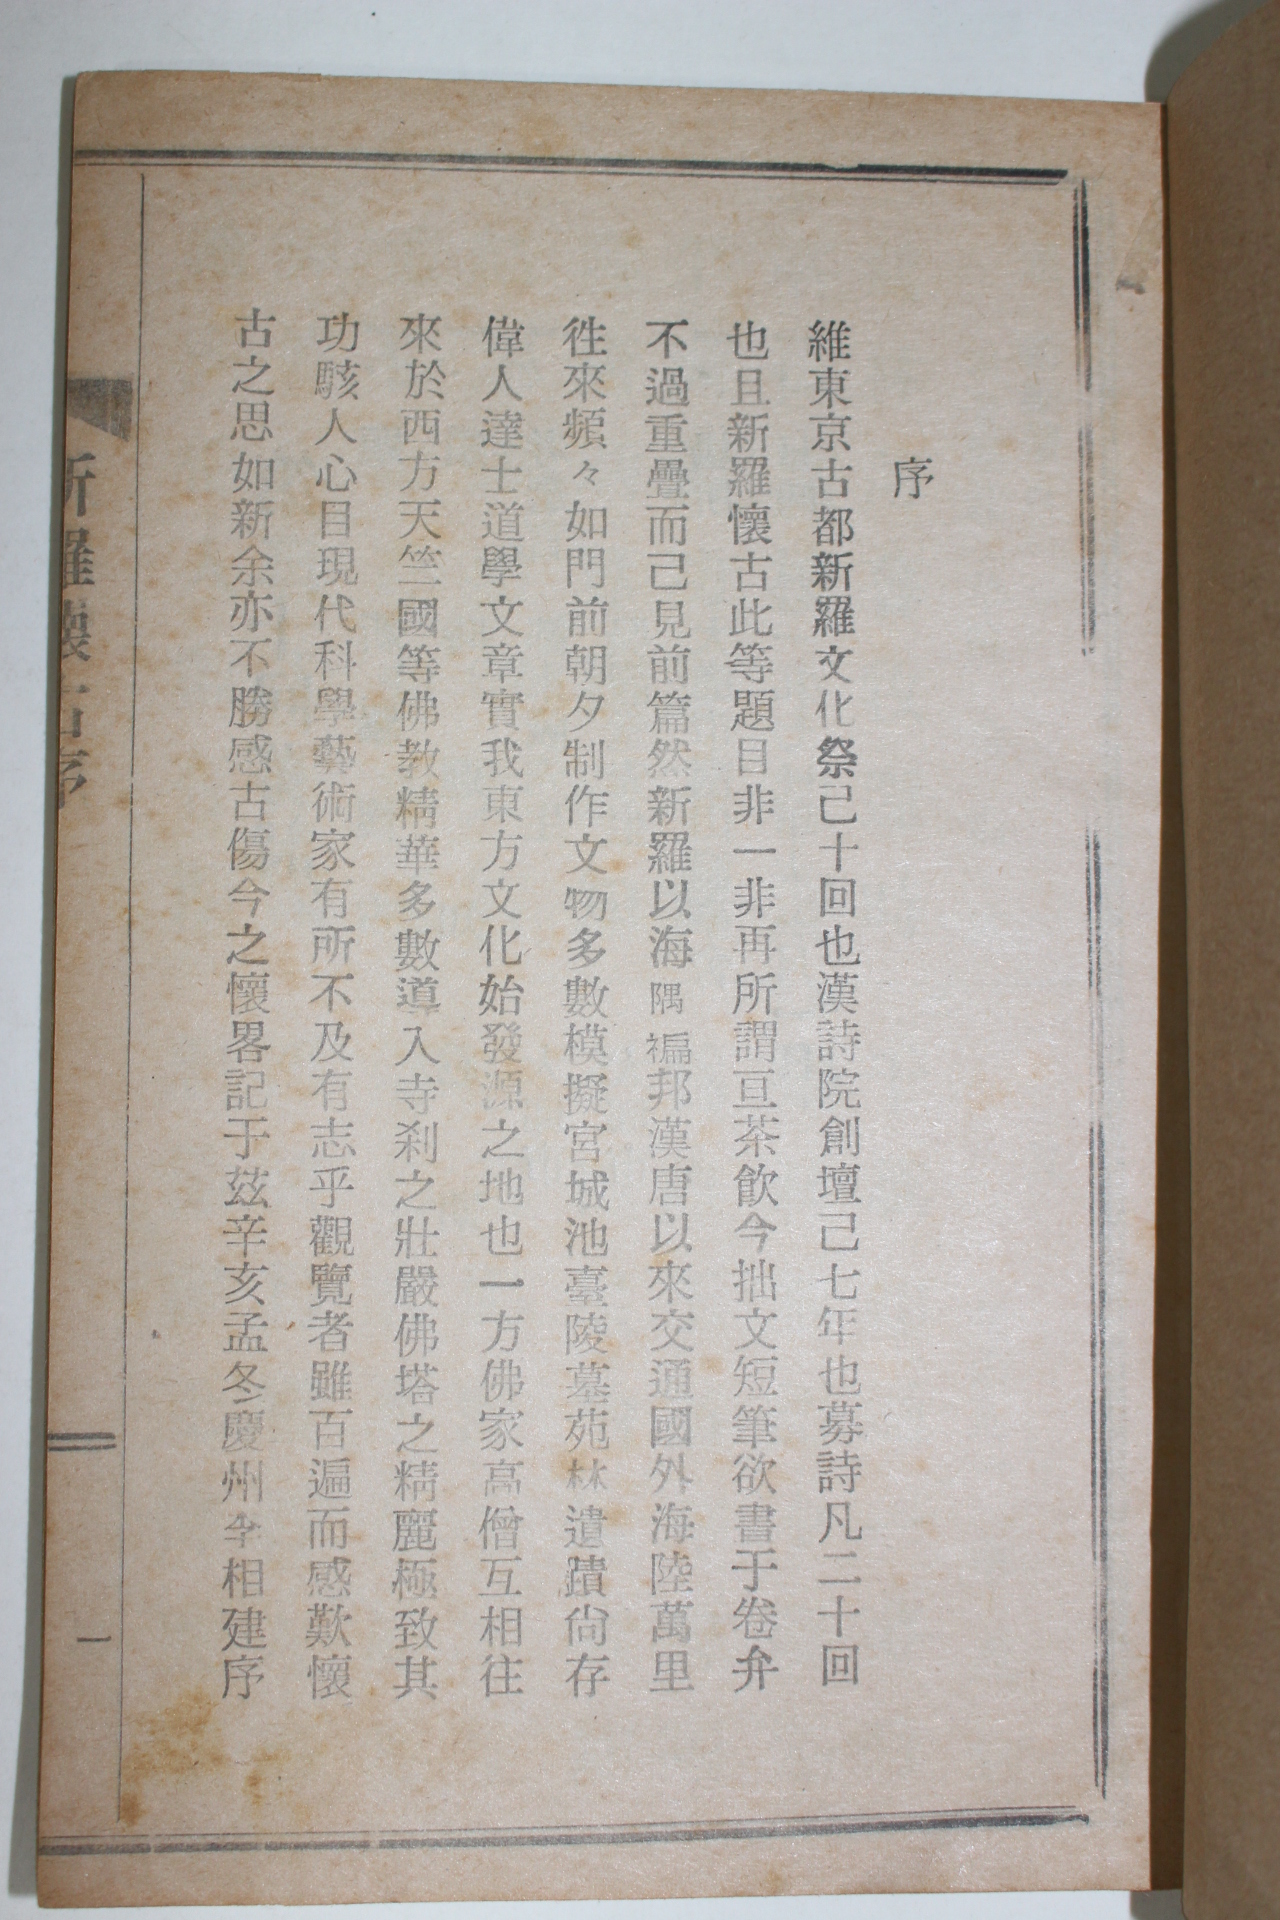 序
維東京古都新羅文化祭己十回也漢詩院創壇己七年也募詩凡二十回
也且新羅懷古此等題目非一非再所謂亘茶飮今拙文短筆欲書于卷弁
不過重疊而己見前篇然新羅以海隅褊邦漢唐以來交通國外海陸萬里
徃來頻々如門前朝夕制作文物多數模擬宮城池臺陵墓苑林遺蹟尙存
偉人達士道學文章實我東方文化始發源之地也一方佛家高僧互相往
來於西方天竺國等佛教精華多數導入寺刹之壯嚴佛塔之精麗極致其
功駭人心目現代科學藝術家有所不及有志乎觀覽者雖百遍而感歎懷
古之思如新余亦不勝感古傷今之懷畧記于茲辛亥孟冬慶州李相建序
新羅懷古序
一